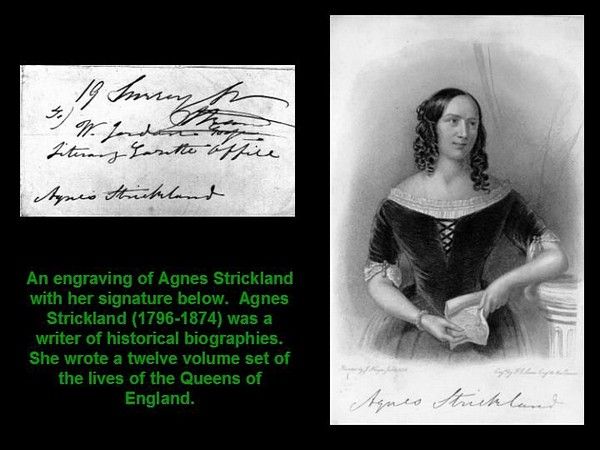 19 Surrey St
W. Jerdan Esqre
Literary Gazette Office
Agnes Strickland
An engraving of Agnes Strickland
with her signature below. Agnes
Strickland (1796-1874) was a
writer of historical biographies.
She wrote a twelve volume set of
the lives of the Queens of
England.
Agnes Strickland